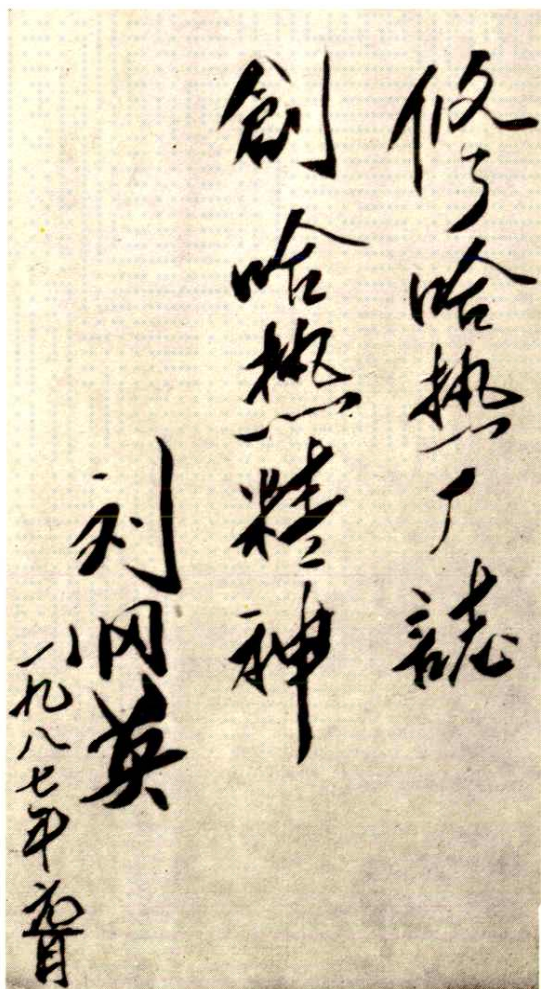 修哈热厂誌
創哈热精神
刘冈英
一九八七年六月